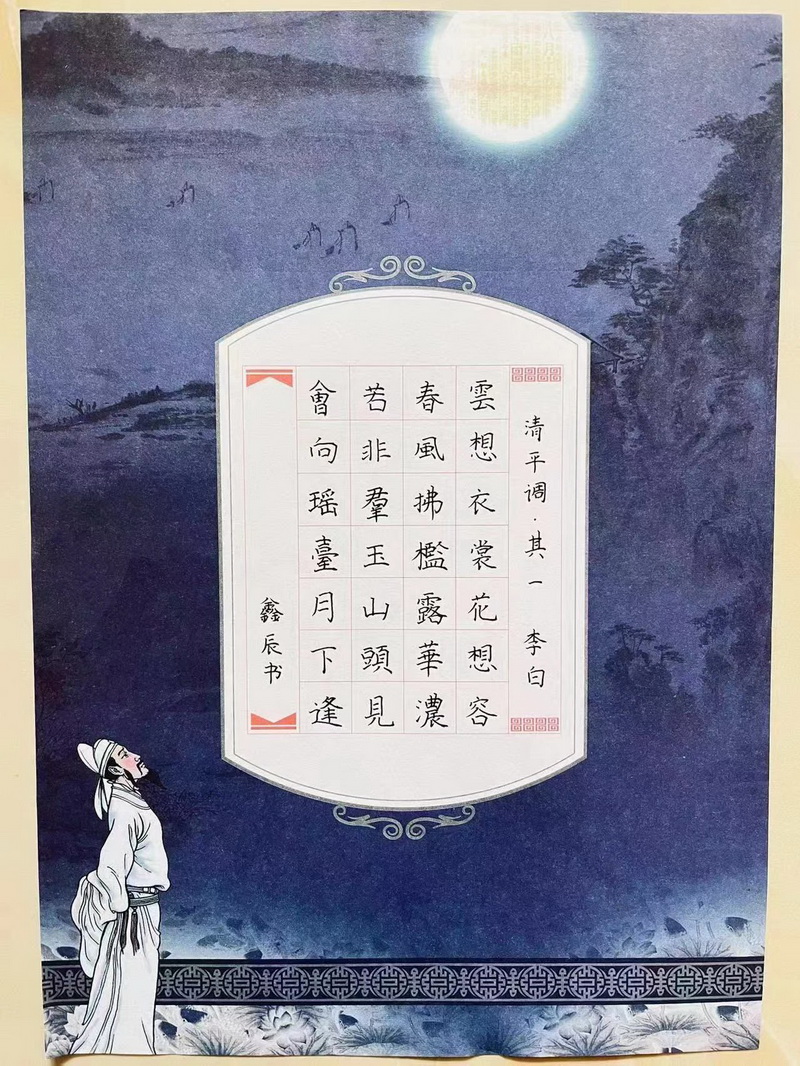 清平调·其一 李白
雲想衣裳花想容
春風拂檻露華濃
若非羣玉山頭見
會向瑶臺月下逢
鑫辰书